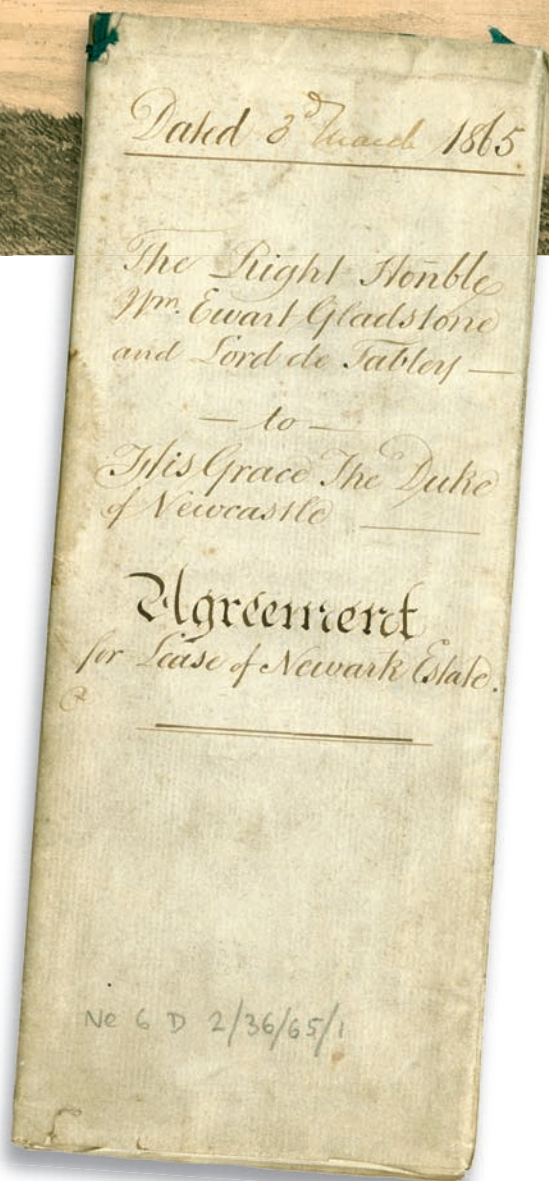 Dated 3d March 1865
The Right Honble
Wm. Ewart Gladstone
and Lord de Tabley —
— to —
His Grace The Duke
of Newcastle
Agreement
for Lease of Newark Estate.
Ne 6 D 2/36/65/1